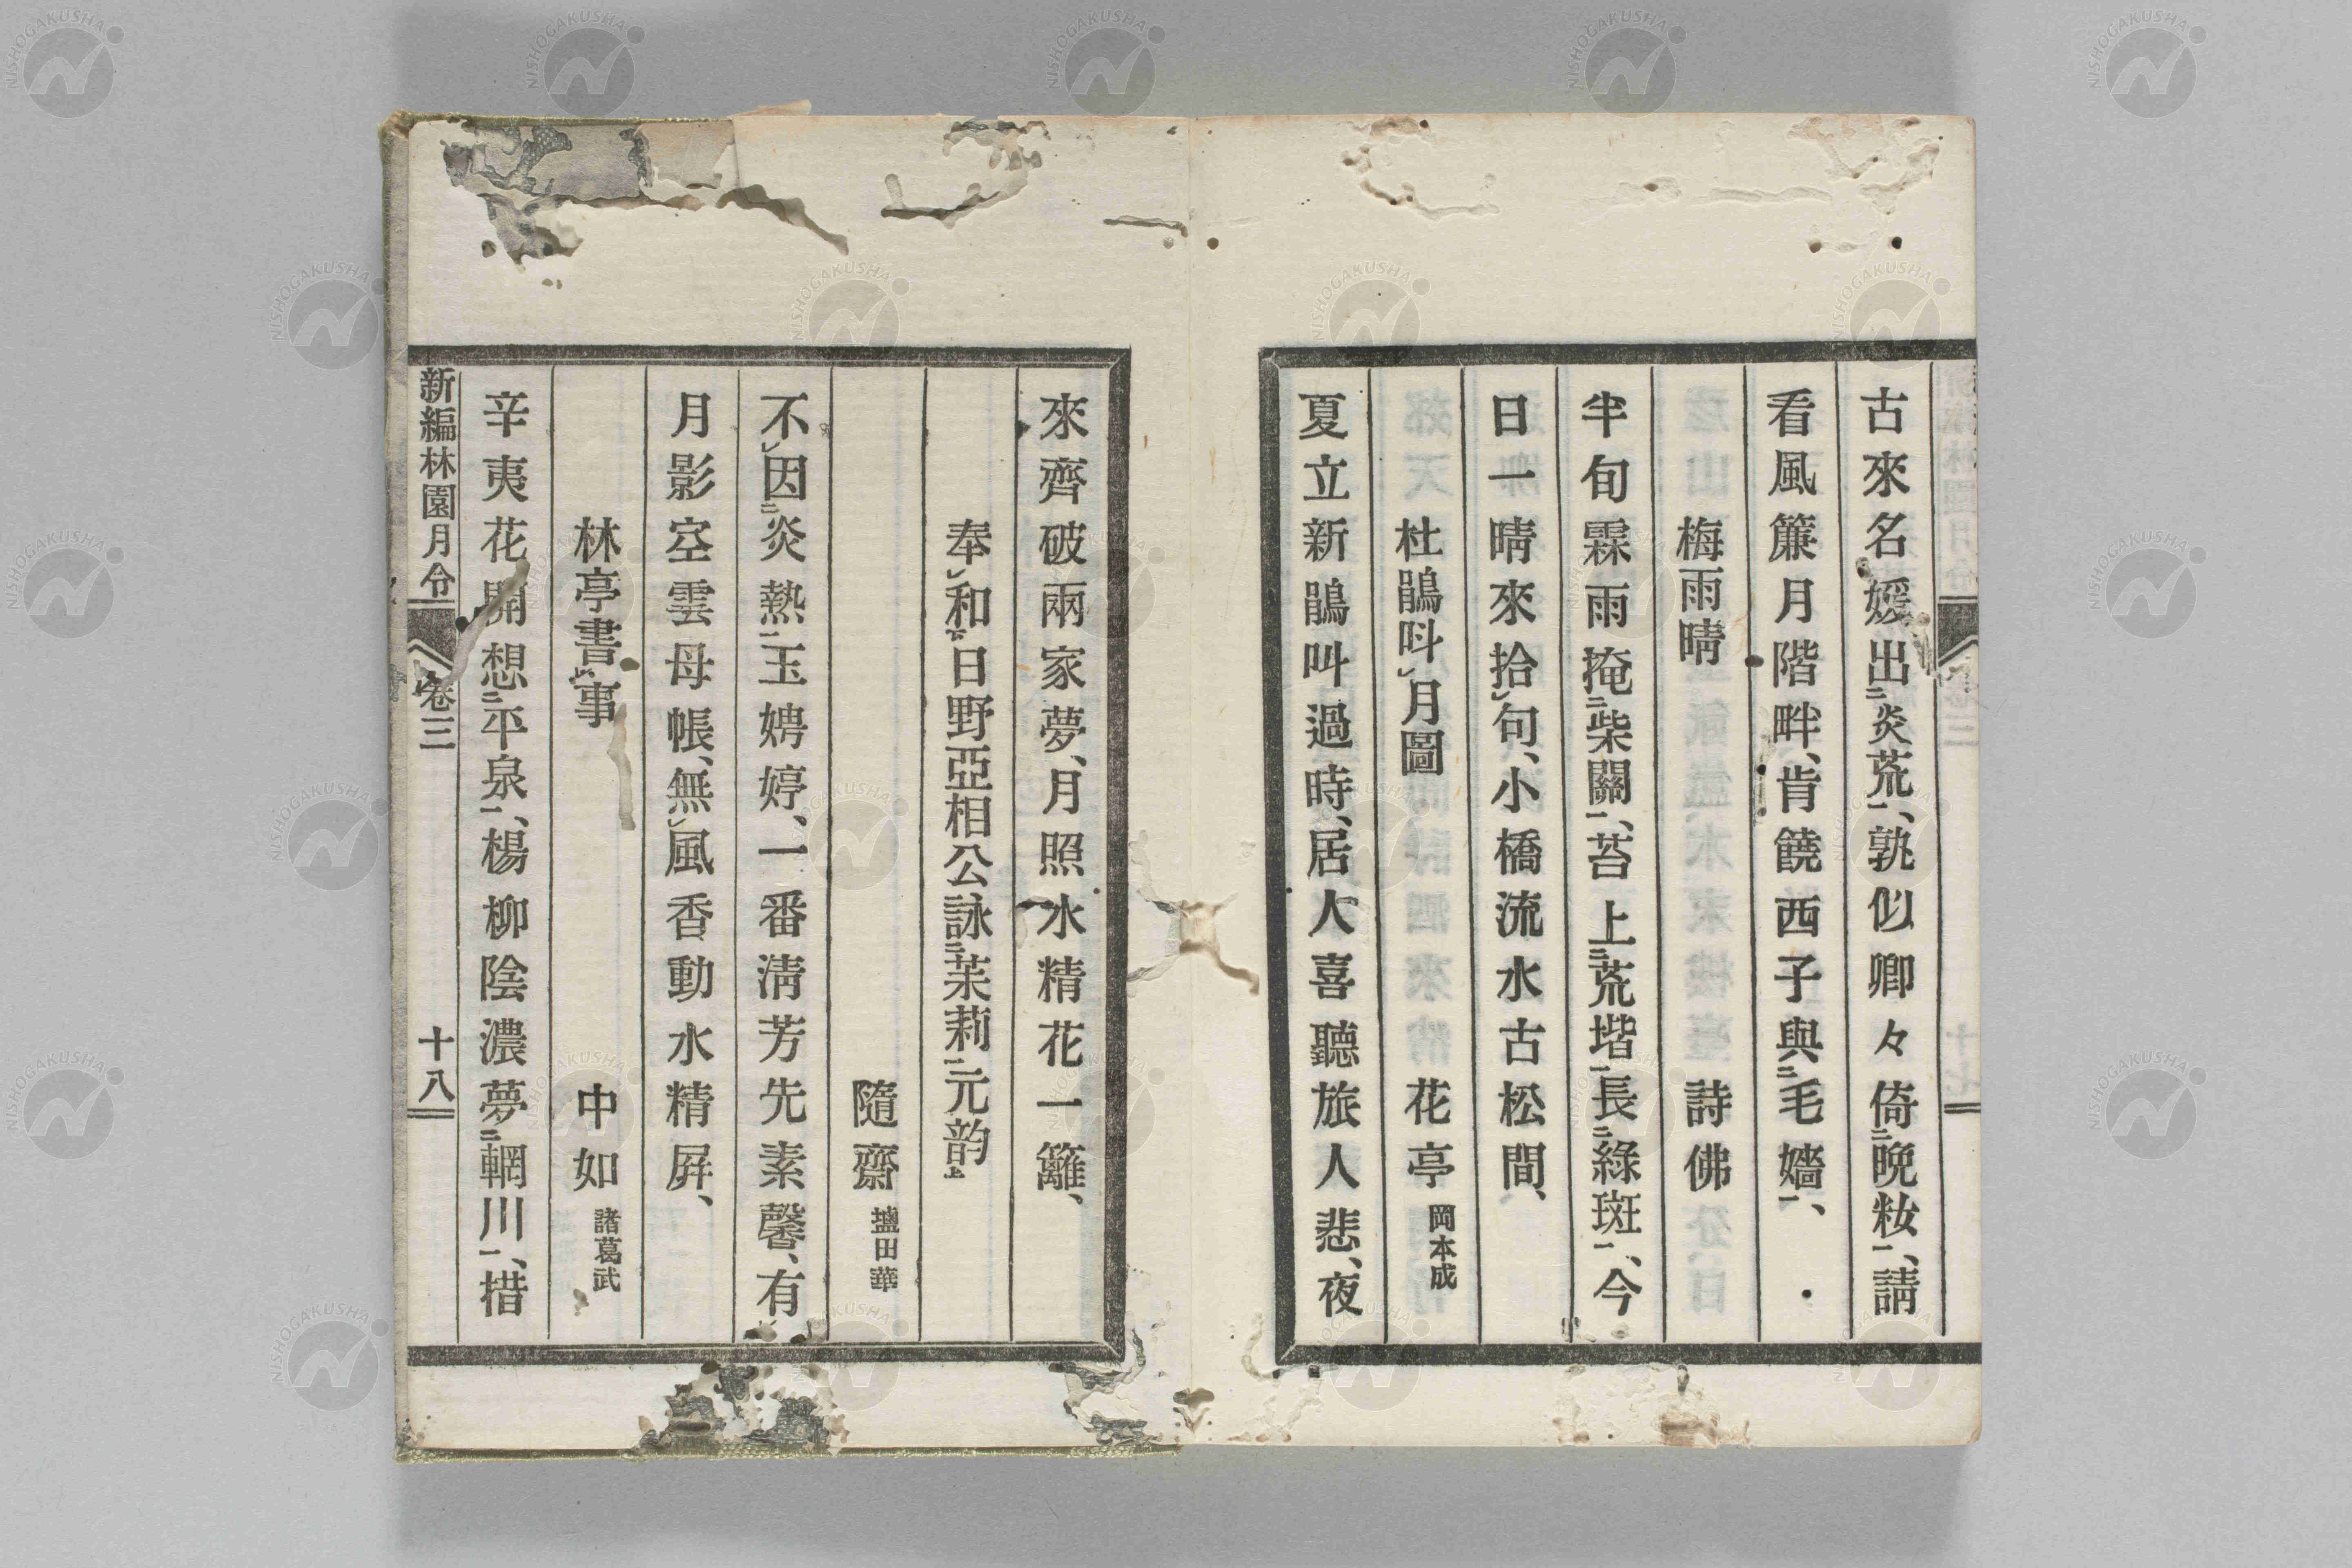 古來名媛出㆓炎荒㆒、孰似卿々倚㆓晩粧㆒、請
看風簾月階畔、肯饒西子與㆓毛嬙㆒、
梅雨晴 詩佛
半旬霖雨掩㆓柴關㆒、苔上㆓荒堦㆒長㆓綠斑㆒、今
日一晴來拾㆑句、小橋流水古松間、
杜鵑呌㆑月圖 花亭 岡本成
夏立新鵑呌過時、居人喜聽旅人悲、夜
來齊破兩家夢、月照水精花一籬、
奉㆑和㆘日野亞相公詠㆓茉莉㆒元韵㆖
隨齋 鹽田華
不㆑因㆓炎熱㆒玉娉婷、一番淸芳先素馨、有㆑
月影空雲母帳、無㆑風香動水精屏、
林亭書㆑事 中如 諸葛武
辛夷花開想㆓平泉㆒、楊柳陰濃夢㆓輞川㆒、措
新編林園月令 卷三 十八
NISHOGAKUSHA